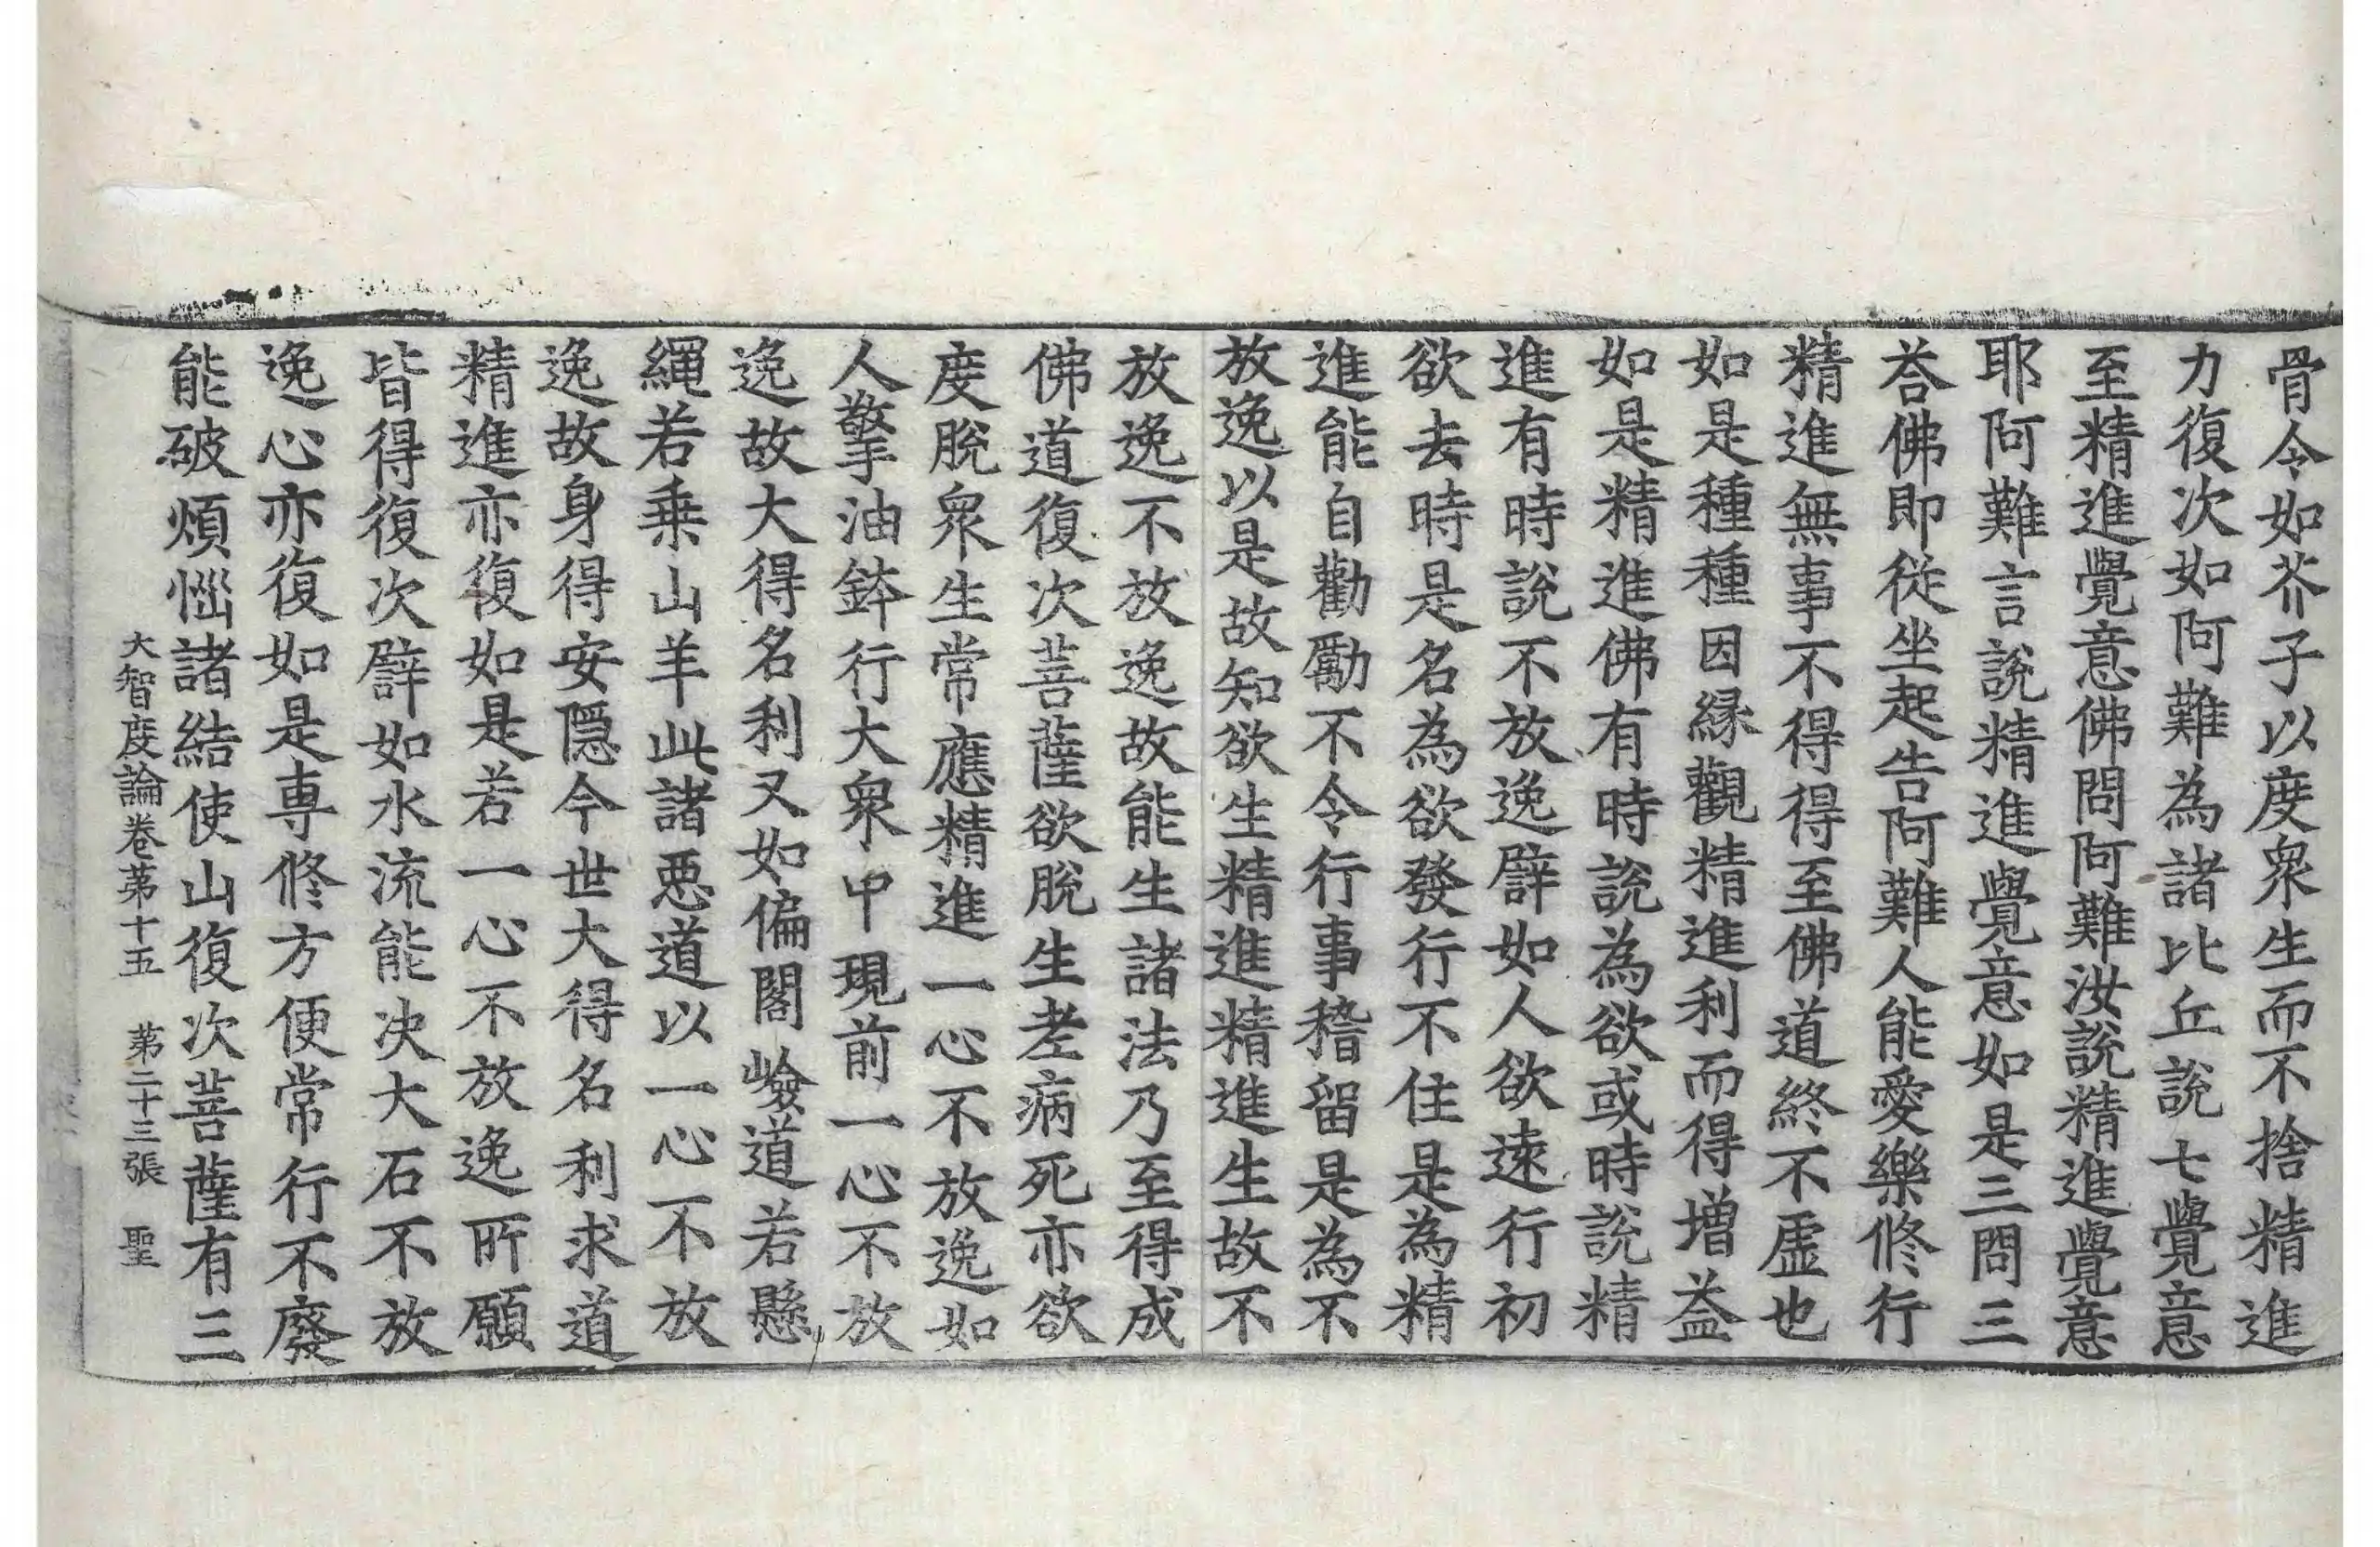 骨令如芥子以度衆生而不捨精進
力復次如阿難為諸比丘說七覺意
至精進覺意佛問阿難汝說精進覺意
耶阿難言說精進覺意如是三問三
荅佛即從坐起告阿難人能愛樂修行
精進無事不得得至佛道終不虛也
如是種種因緣觀精進利而得增益
如是精進佛有時說為欲或時說精
進有時說不放逸譬如人欲遠行初
欲去時是名為欲發行不住是為精
進能自勸勵不令行事稽留是為不
放逸以是故知欲生精進精進生故不
放逸不放逸故能生諸法乃至得成
佛道復次菩薩欲脫生老病死亦欲
度脫衆生常應精進一心不放逸如
人擎油鉢行大衆中現前一心不放
逸故大得名利又如偏閣嶮道若懸
繩若乗山羊此諸惡道以一心不放
逸故身得安隱今世大得名利求道
精進亦復如是若一心不放逸所願
皆得復次譬如水流能决大石不放
逸心亦復如是專修方便常行不廢
能破煩惱諸結使山復次菩薩有三
大智度論卷苐十五　苐二十三張　聖